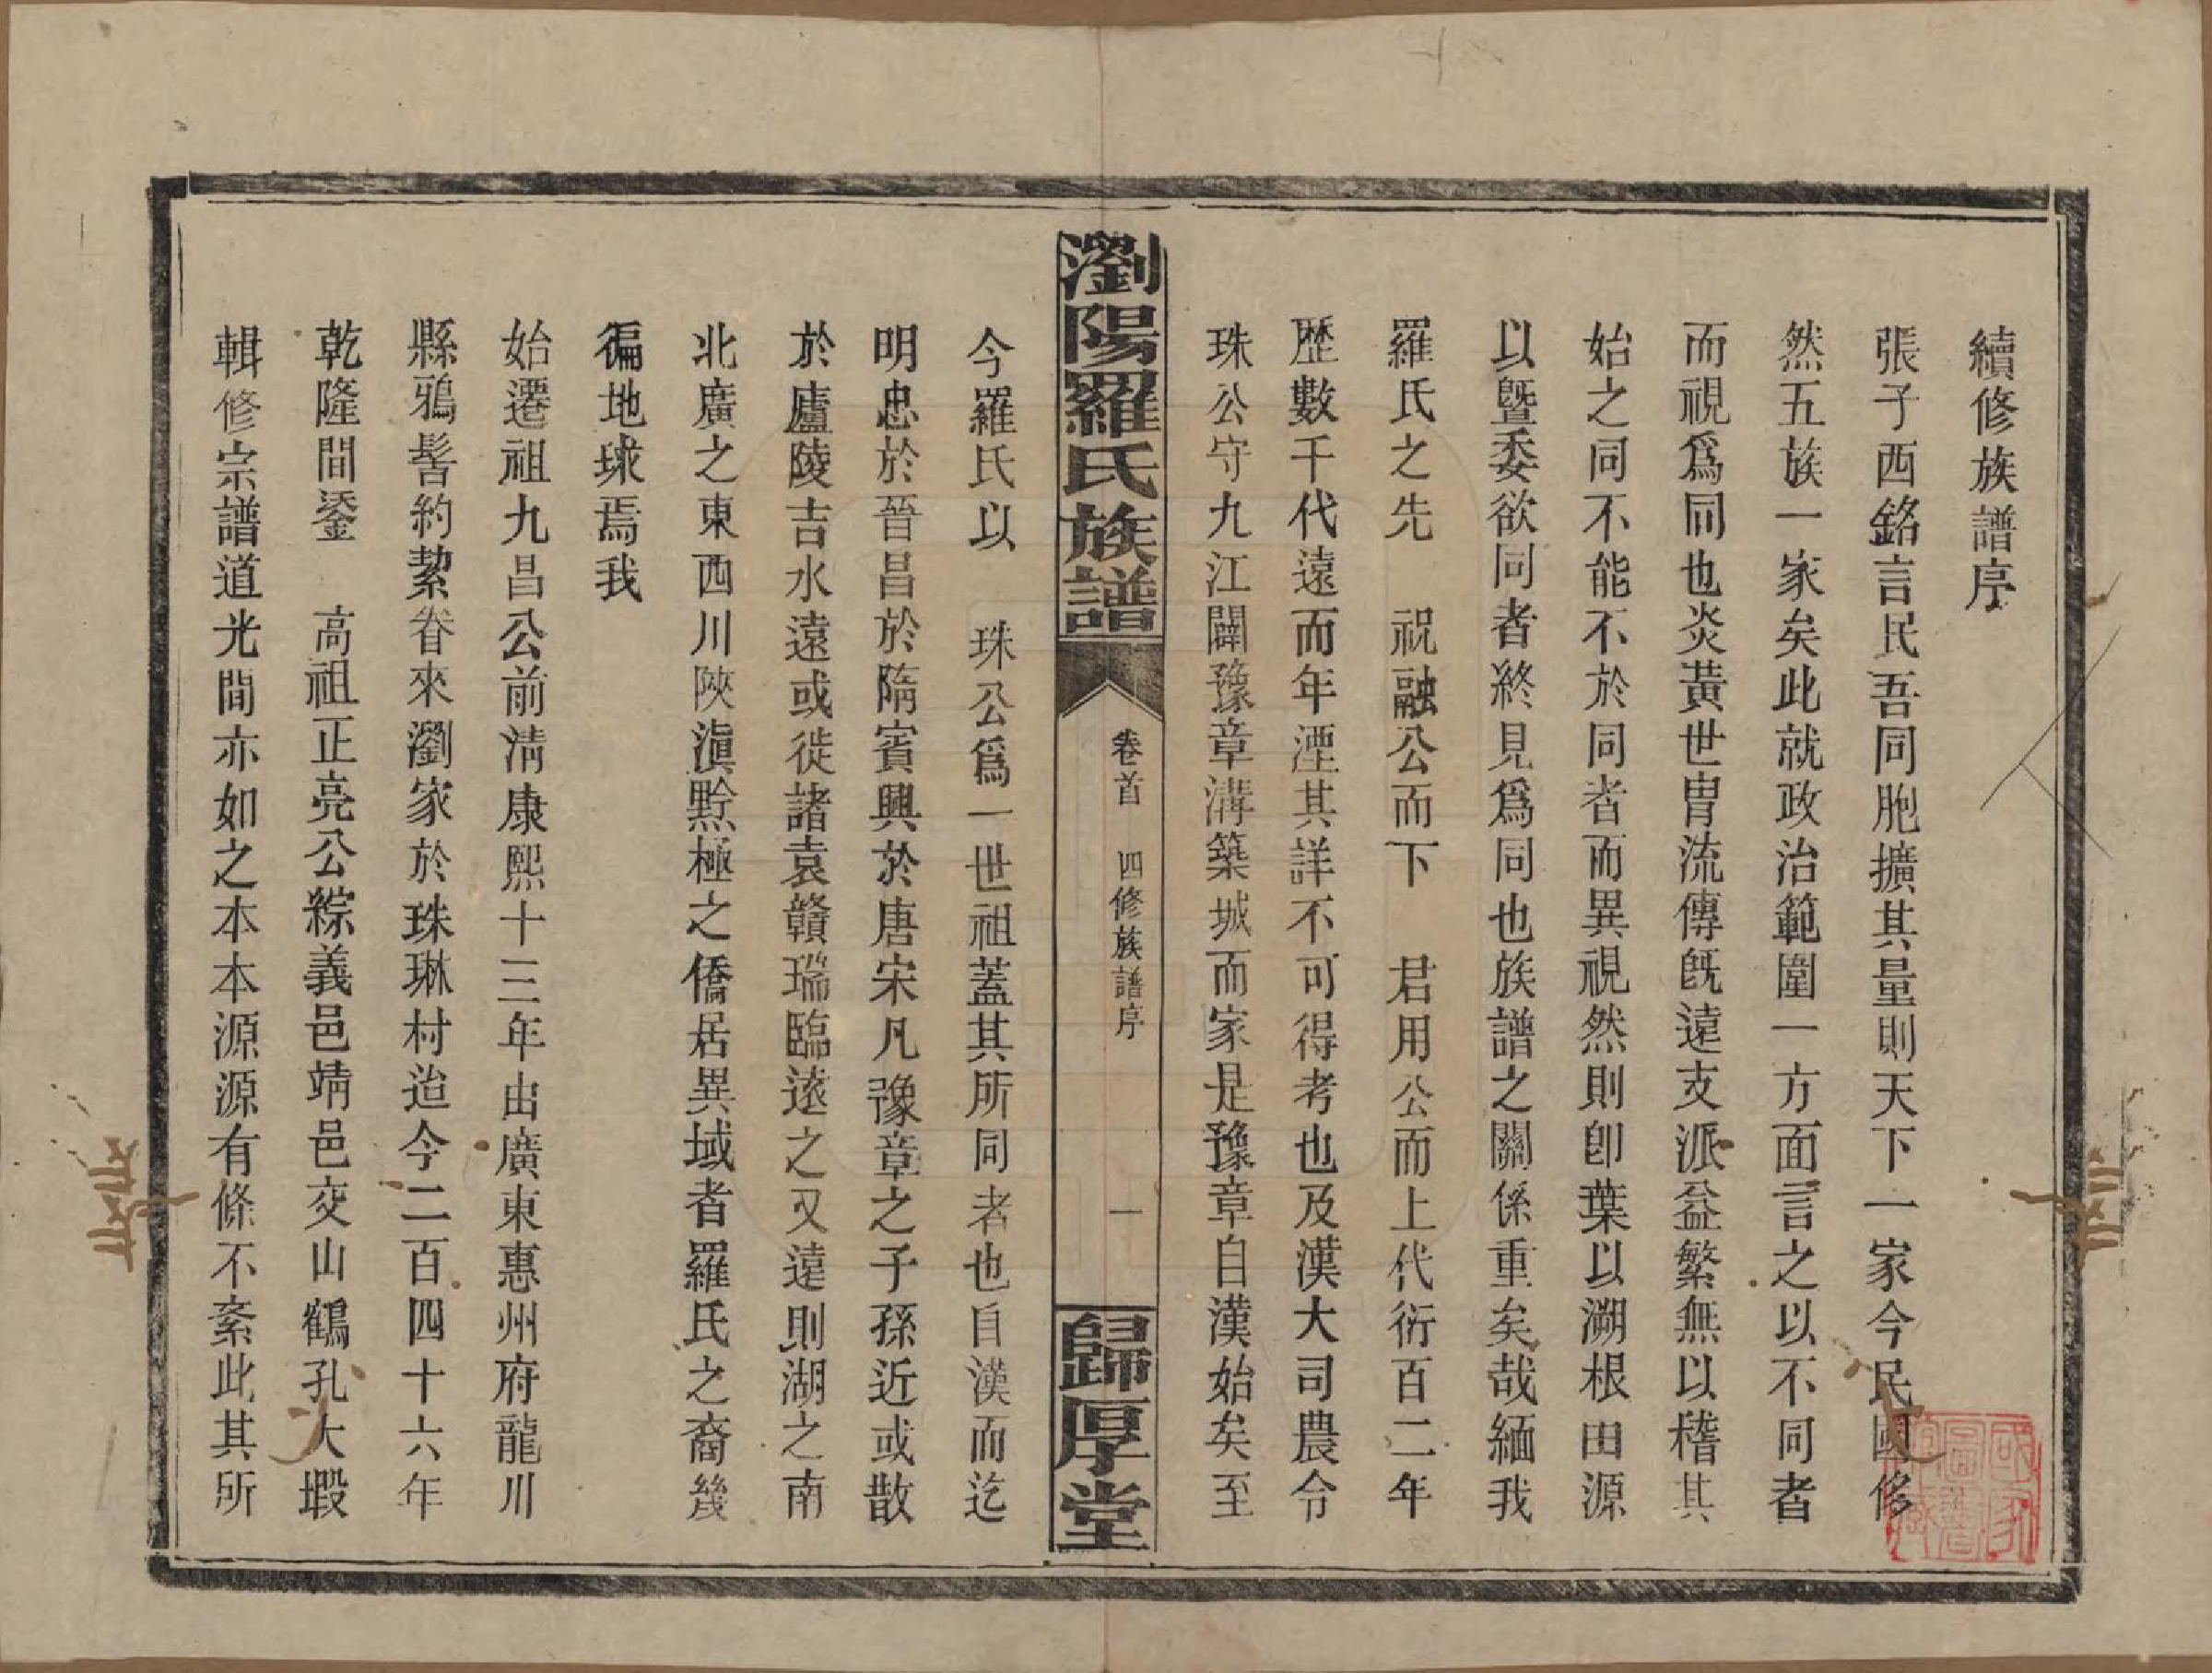 續修族譜序
張子西銘言民吾同胞擴其量則天下一家今民國修
然五族一家矣此就政治範圍一方面言之以不同者
而視爲同也炎黃世胄流傳旣遠支派益繁無以稽其
始之同不能不於同者而異視然則卽葉以溯根由源
以曁委欲同者終見爲同也族譜之關係重矣哉緬我
羅氏之先 祝融公而下 君用公而上代衍百二年
歷數千代遠而年湮其詳不可得考也及漢大司農令
珠公守九江闢豫章溝築城而家是豫章自漢始矣至
瀏陽羅氏族譜
卷首 四修族譜序
一
歸厚堂
今羅氏以 珠公爲一世祖蓋其所同者也自漢而迄
明忠於晉昌於隋賓興於唐宋凡豫章之子孫近或散
於廬陵吉水遠或徙諸袁贛瑞臨遠之又遠則湖之南
北廣之東西川陝滇黔極之僑居異域者羅氏之裔幾
徧地球焉我
始遷祖九昌公前淸康熙十三年由廣東惠州府龍川
縣鴉髻約絜眷來瀏家於珠琳村迨今二百四十六年
乾隆間鋈 高祖正亮公綜義邑靖邑交山鶴孔大塅
輯修宗譜道光間亦如之本本源源有條不紊此其所
國家圖書館藏